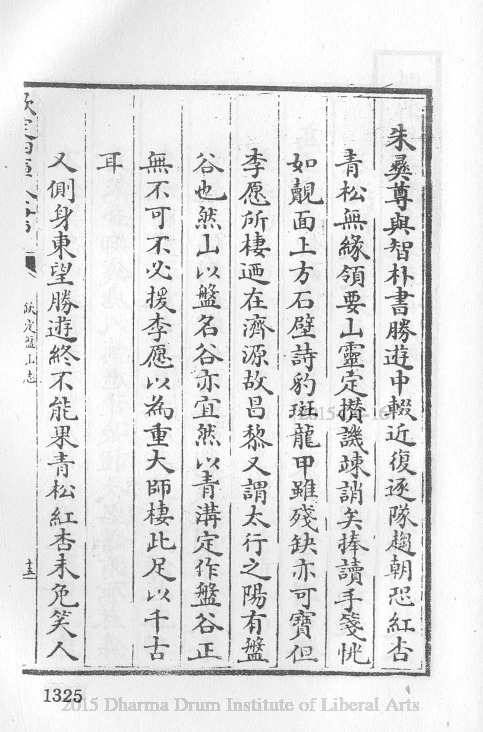 朱彜尊與智朴書勝遊中輟近復逐隊趨朝恐紅杏
青松無緣領要山靈定攅譏竦誚矣捧讀手箋恍
如覿面上方石壁詩豹斑龍甲雖殘缺亦可寶但
李愿所棲迺在濟源故昌黎又謂太行之陽有盤
谷也然山以盤名谷亦宜然以青溝定作盤谷正
無不可不必援李愿以為重大師棲此足以千古
耳
又側身東望勝遊終不能果青松紅杏未免笑人
欽定四庫全書
欽定盤山志
1325
2015 Dharma Drum Institute of Liberal Arts